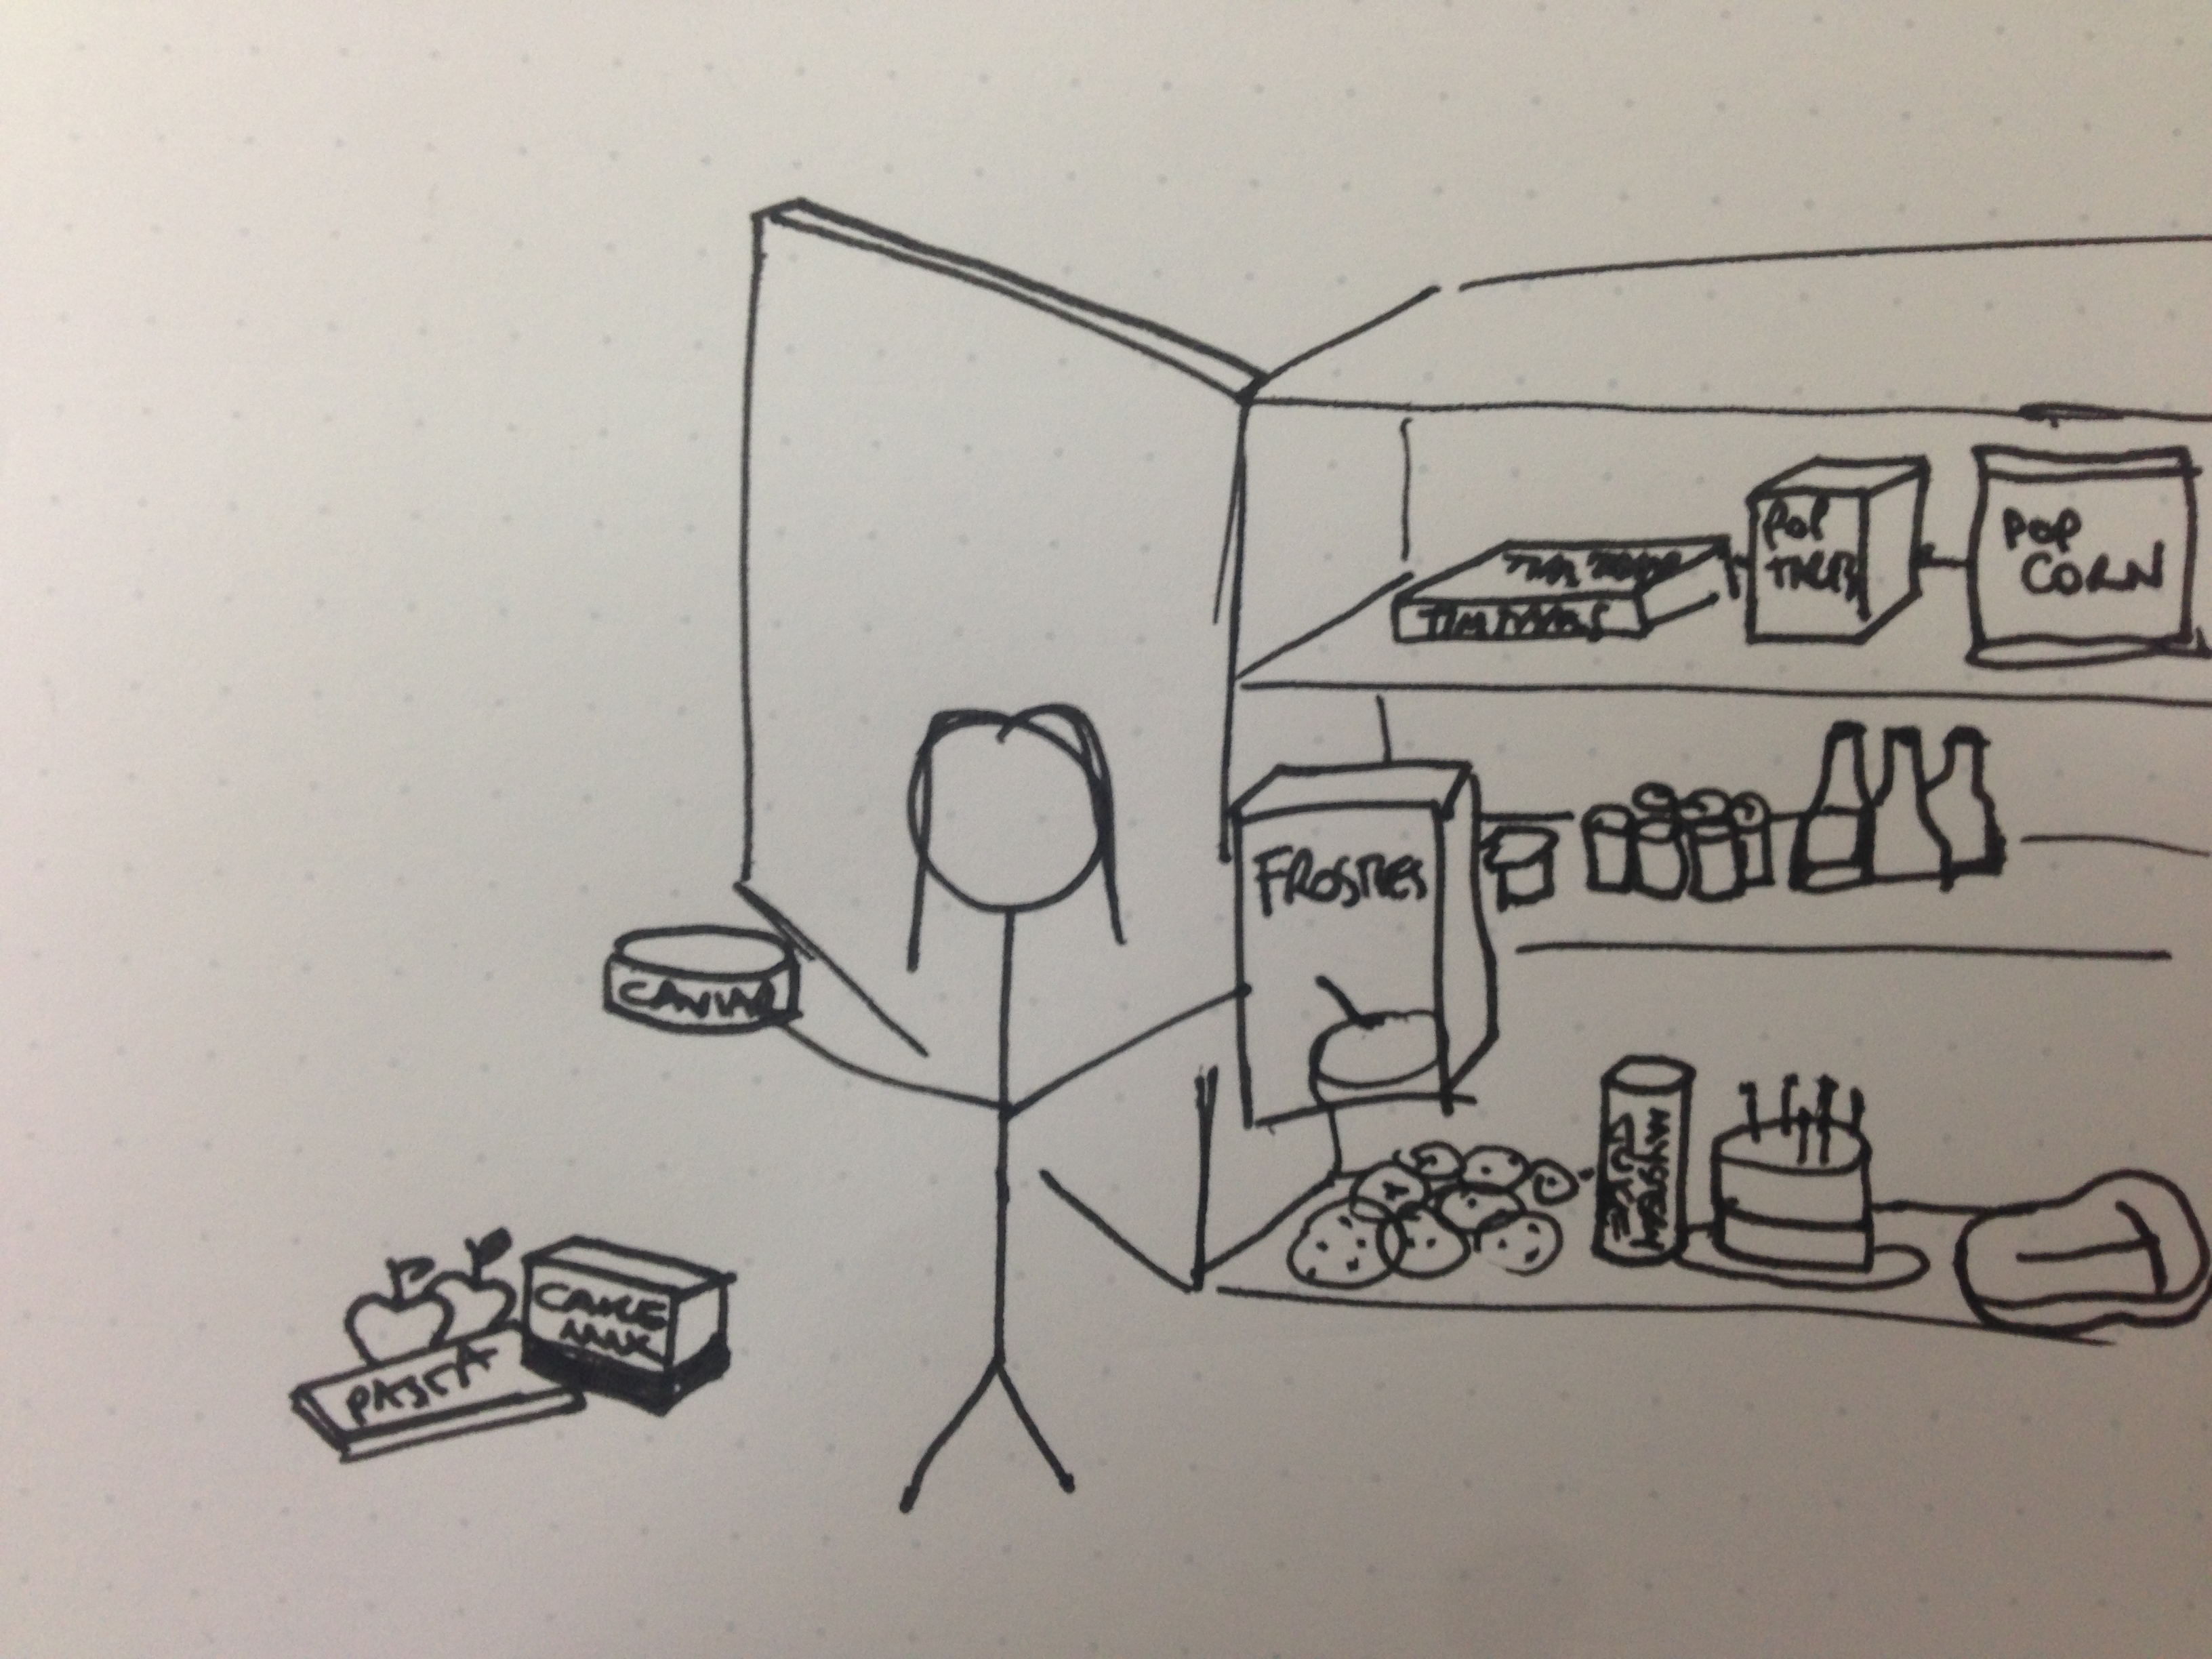 TIM TAMS
TIM TAMS
POP
TARTS
POP
CORN
FROSTIES
CAVIAR
CAKE
MIX
PASTA